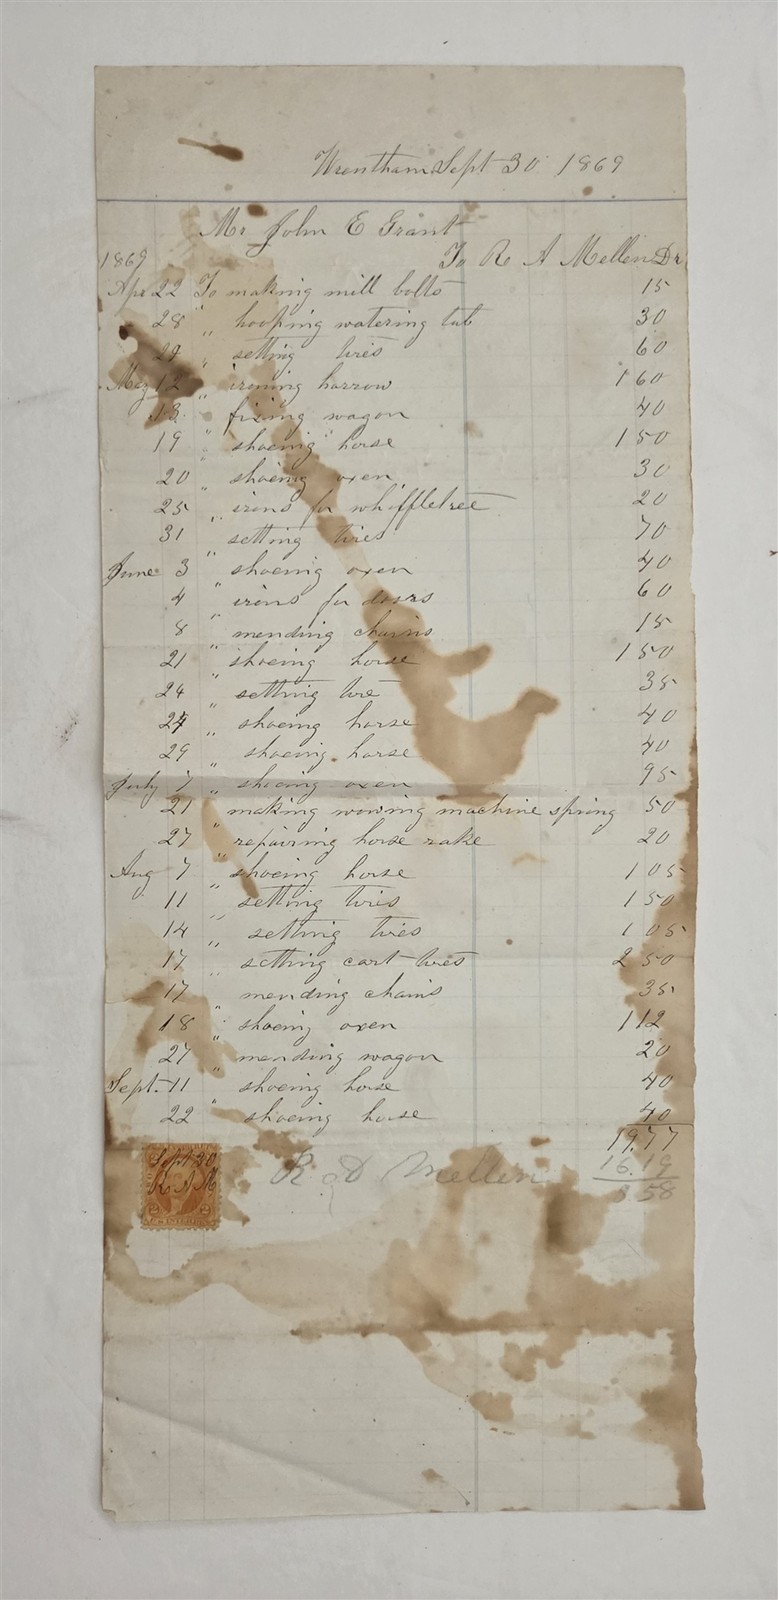 Wrentham Sept 30 1869
Mr John E Grant
1869 To R A Mellen Dr
Apr 22 To making mill bolts 15
28 " hooping watering tub 30
29 " setting tires 60
May 12 " ironing harrow 1 60
13 " fixing wagon 40
19 " shoeing horse 1 50
20 " shoeing oxen 30
25 " irons for whiffletree 20
31 " setting tires 70
June 3 " shoeing oxen 40
4 " irons for doors 60
8 " mending chains 15
21 " shoeing horse 1 50
24 " setting tire 35
24 " shoeing horse 40
29 " shoeing horse 40
July 7 " shoeing oxen 95
21 " making mowing machine spring 50
27 " repairing horse rake 20
Aug 7 " shoeing horse 1 05
11 " setting tires 1 50
14 " setting tires 1 05
17 " setting cart tires 2 50
17 " mending chains 35
18 " shoeing oxen 1 12
27 " mending wagon 20
Sept. 11 " shoeing horse 40
22 " shoeing horse 40
19.77
Sept 30
R A M
R Mellen
16.19
3 58
2 2